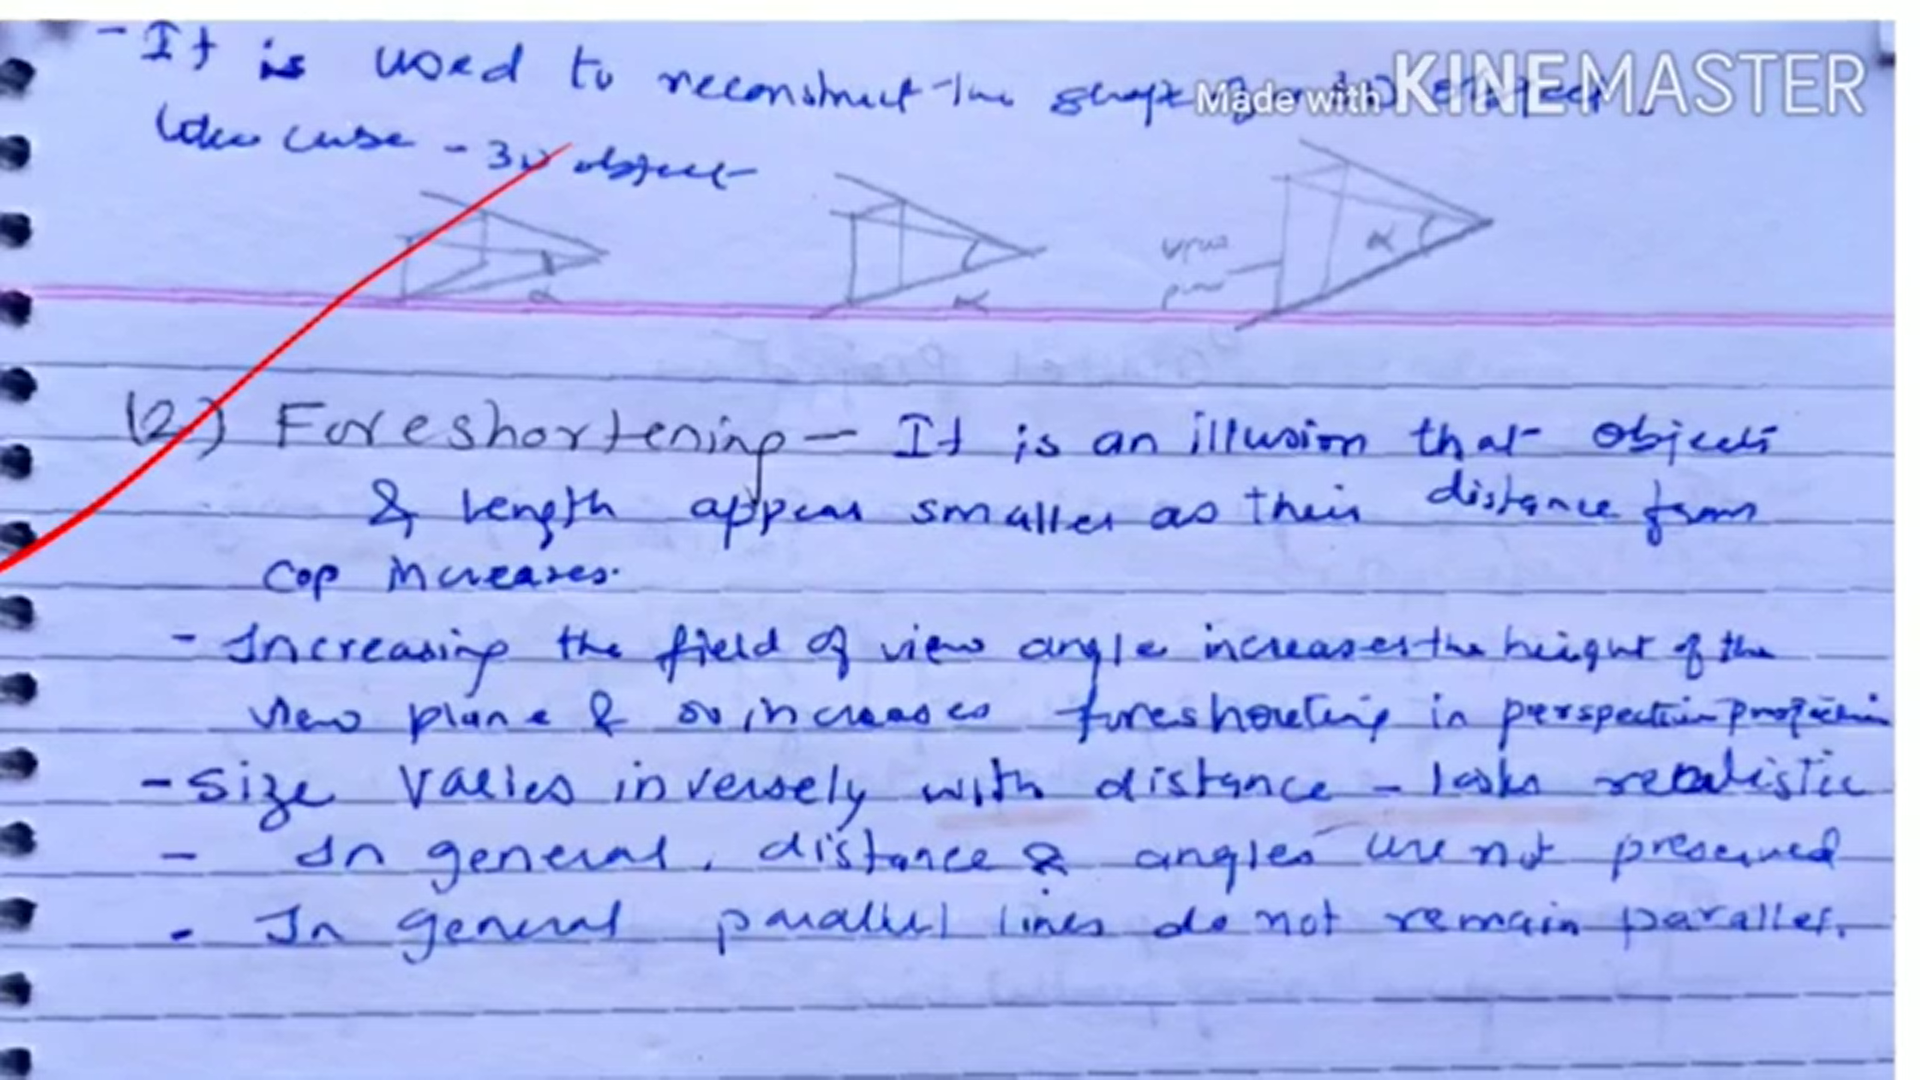 - It is used to reconstruct the shape
Made with KINEMASTER
case - 3D object
α
α
view
α
(2) Foreshortening - It is an illusion that objects
& length appear smaller as their distance from
COP increases.
- Increasing the field of view angle increases the height of the
view plane & so increases foreshorting in perspective projection
- Size varies inversely with distance - looks realistic
- In general, distance & angles are not preserved
- In general parallel lines do not remain parallel.